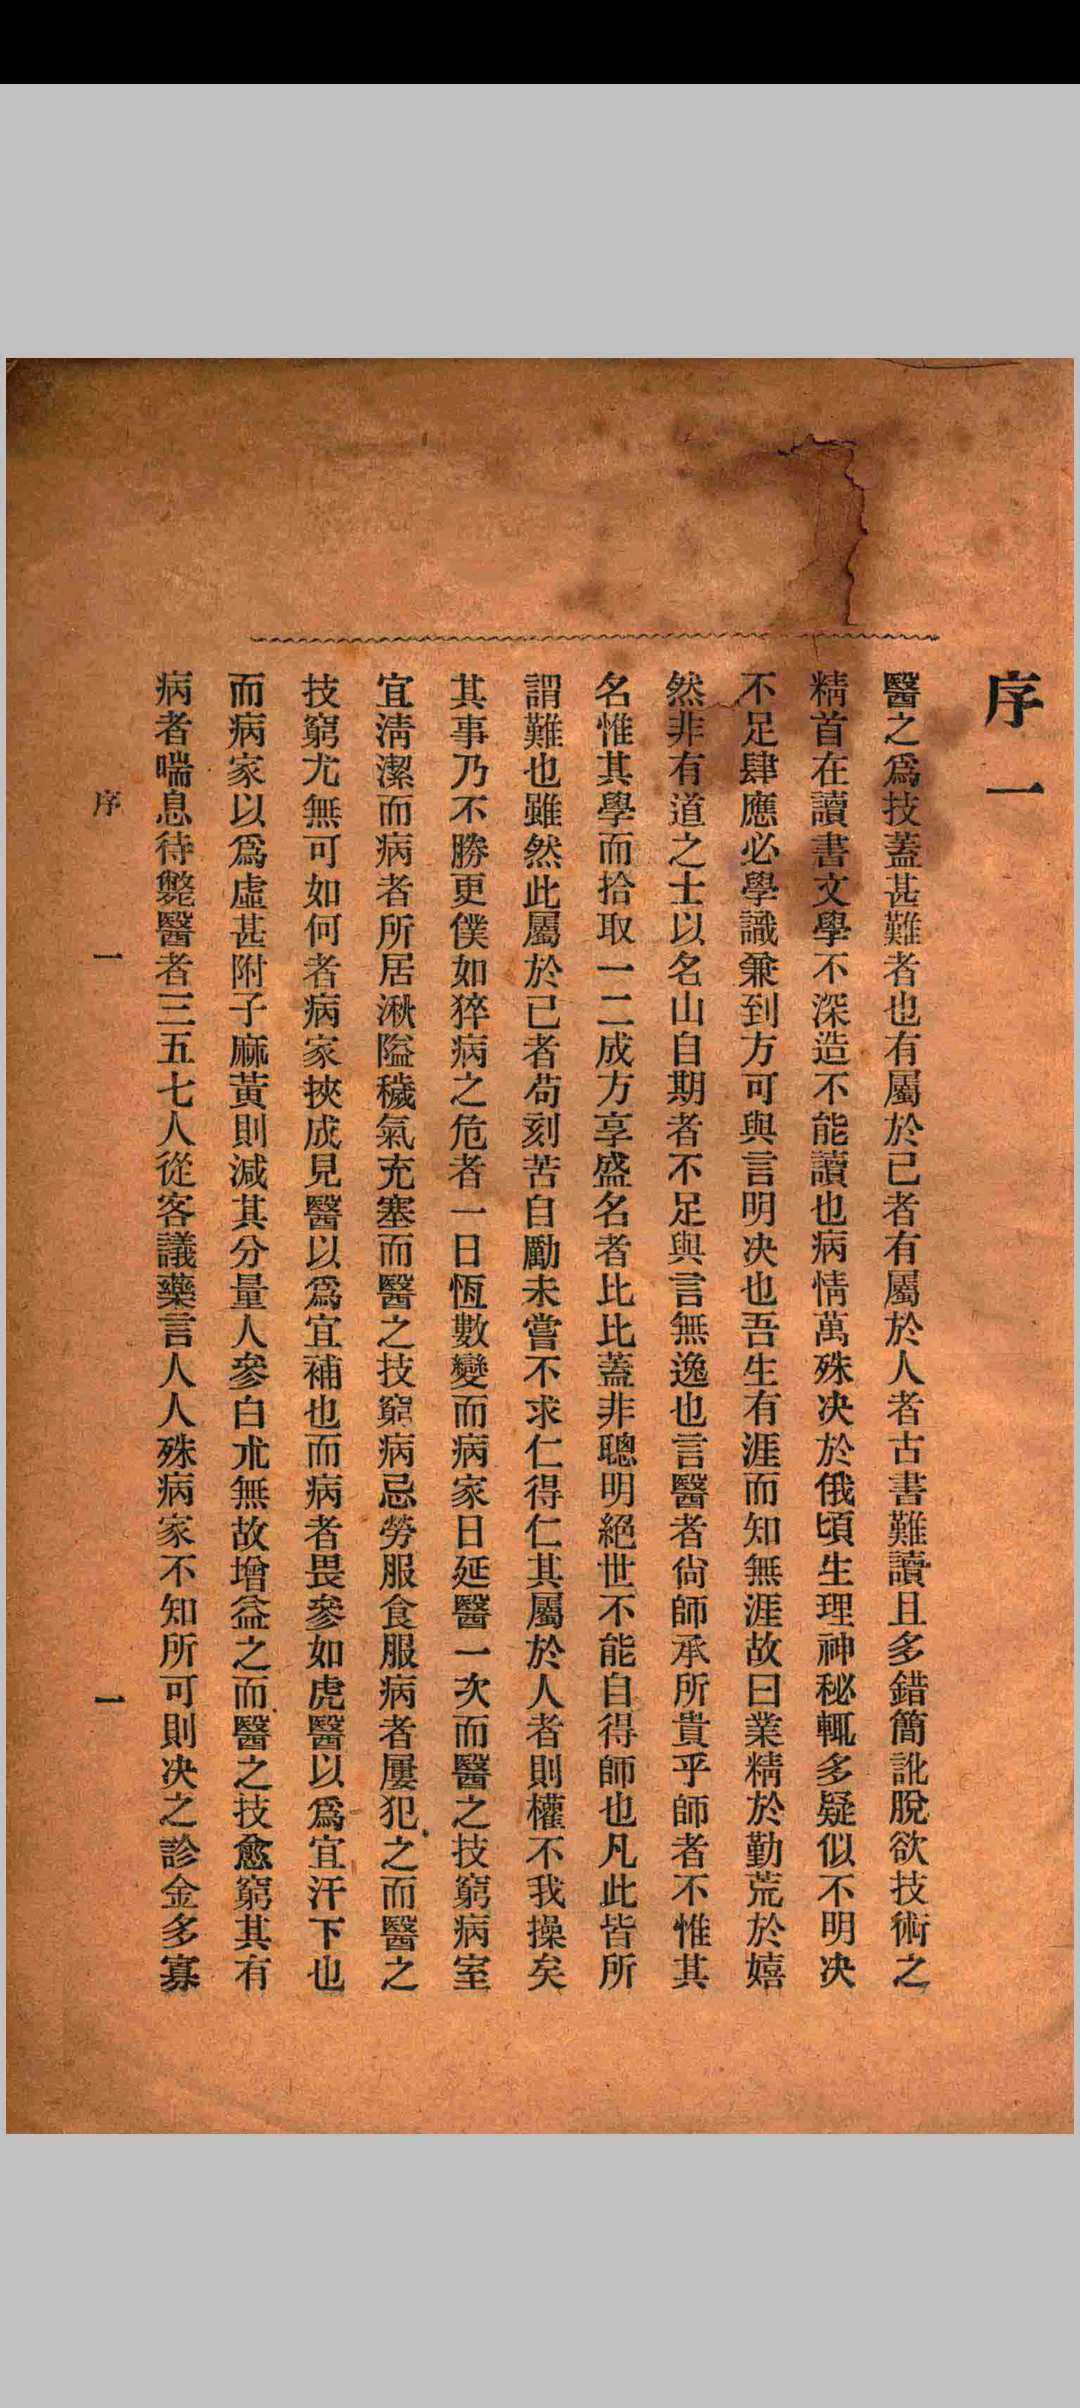 序一
醫之爲技蓋甚難者也有屬於已者有屬於人者古書難讀且多錯簡訛脫欲技術之
精首在讀書文學不深造不能讀也病情萬殊决於俄頃生理神秘輒多疑似不明决
不足肆應必學識兼到方可與言明决也吾生有涯而知無涯故曰業精於勤荒於嬉
然非有道之士以名山自期者不足與言無逸也言醫者尙師承所貴乎師者不惟其
名惟其學而拾取一二成方享盛名者比比蓋非聰明絕世不能自得師也凡此皆所
謂難也雖然此屬於已者苟刻苦自勵未嘗不求仁得仁其屬於人者則權不我操矣
其事乃不勝更僕如猝病之危者一日恆數變而病家日延醫一次而醫之技窮病室
宜清潔而病者所居湫隘穢氣充塞而醫之技窮病忌勞服食服病者屢犯之而醫之
技窮尤無可如何者病家挾成見醫以爲宜補也而病者畏參如虎醫以爲宜汗下也
而病家以爲虛甚附子麻黃則減其分量人參白朮無故增益之而醫之技愈窮其有
病者喘息待斃醫者三五七人從容議藥言人人殊病家不知所可則决之診金多寡
序 一 一